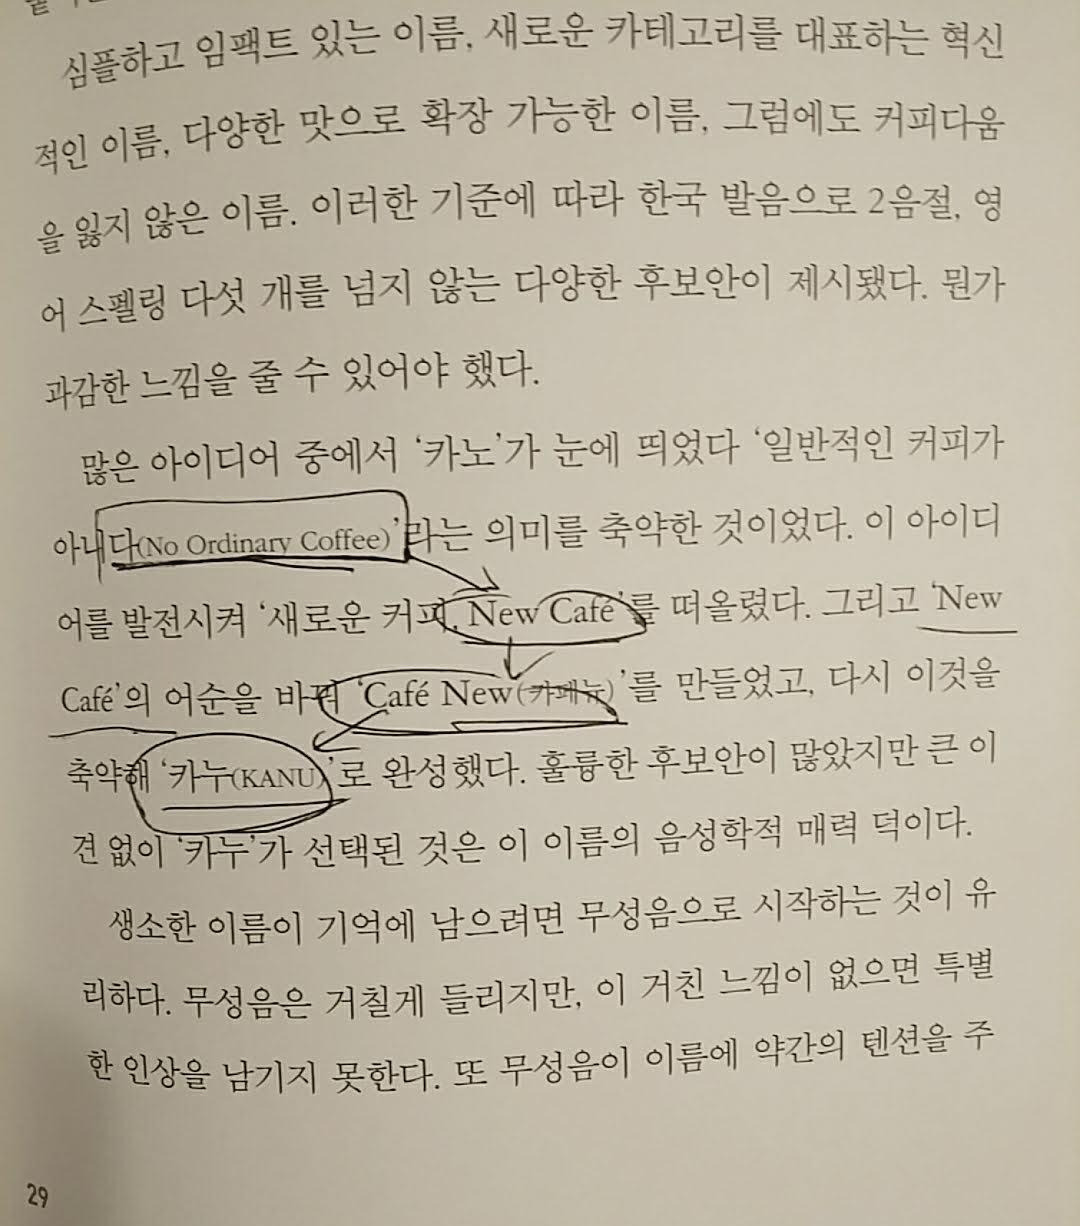 심플하고 임팩트 있는 이름, 새로운 카테고리를 대표하는 혁신
적인 이름, 다양한 맛으로 확장 가능한 이름, 그럼에도 커피다움
을 잃지 않은 이름. 이러한 기준에 따라 한국 발음으로 2음절, 영
어 스펠링 다섯 개를 넘지 않는 다양한 후보안이 제시됐다. 뭔가
과감한 느낌을 줄 수 있어야 했다.
많은 아이디어 중에서 ‘카노’가 눈에 띄었다 ‘일반적인 커피가
아니다(No Ordinary Coffee)’라는 의미를 축약한 것이었다. 이 아이디
어를 발전시켜 ‘새로운 커피, New Café’를 떠올렸다. 그리고 ‘New
Café’의 어순을 바꿔 ‘Café New(카페뉴)’를 만들었고, 다시 이것을
축약해 ‘카누(KANU)’로 완성했다. 훌륭한 후보안이 많았지만 큰 이
견 없이 ‘카누’가 선택된 것은 이 이름의 음성학적 매력 덕이다.
생소한 이름이 기억에 남으려면 무성음으로 시작하는 것이 유
리하다. 무성음은 거칠게 들리지만, 이 거친 느낌이 없으면 특별
한 인상을 남기지 못한다. 또 무성음이 이름에 약간의 텐션을 주
29